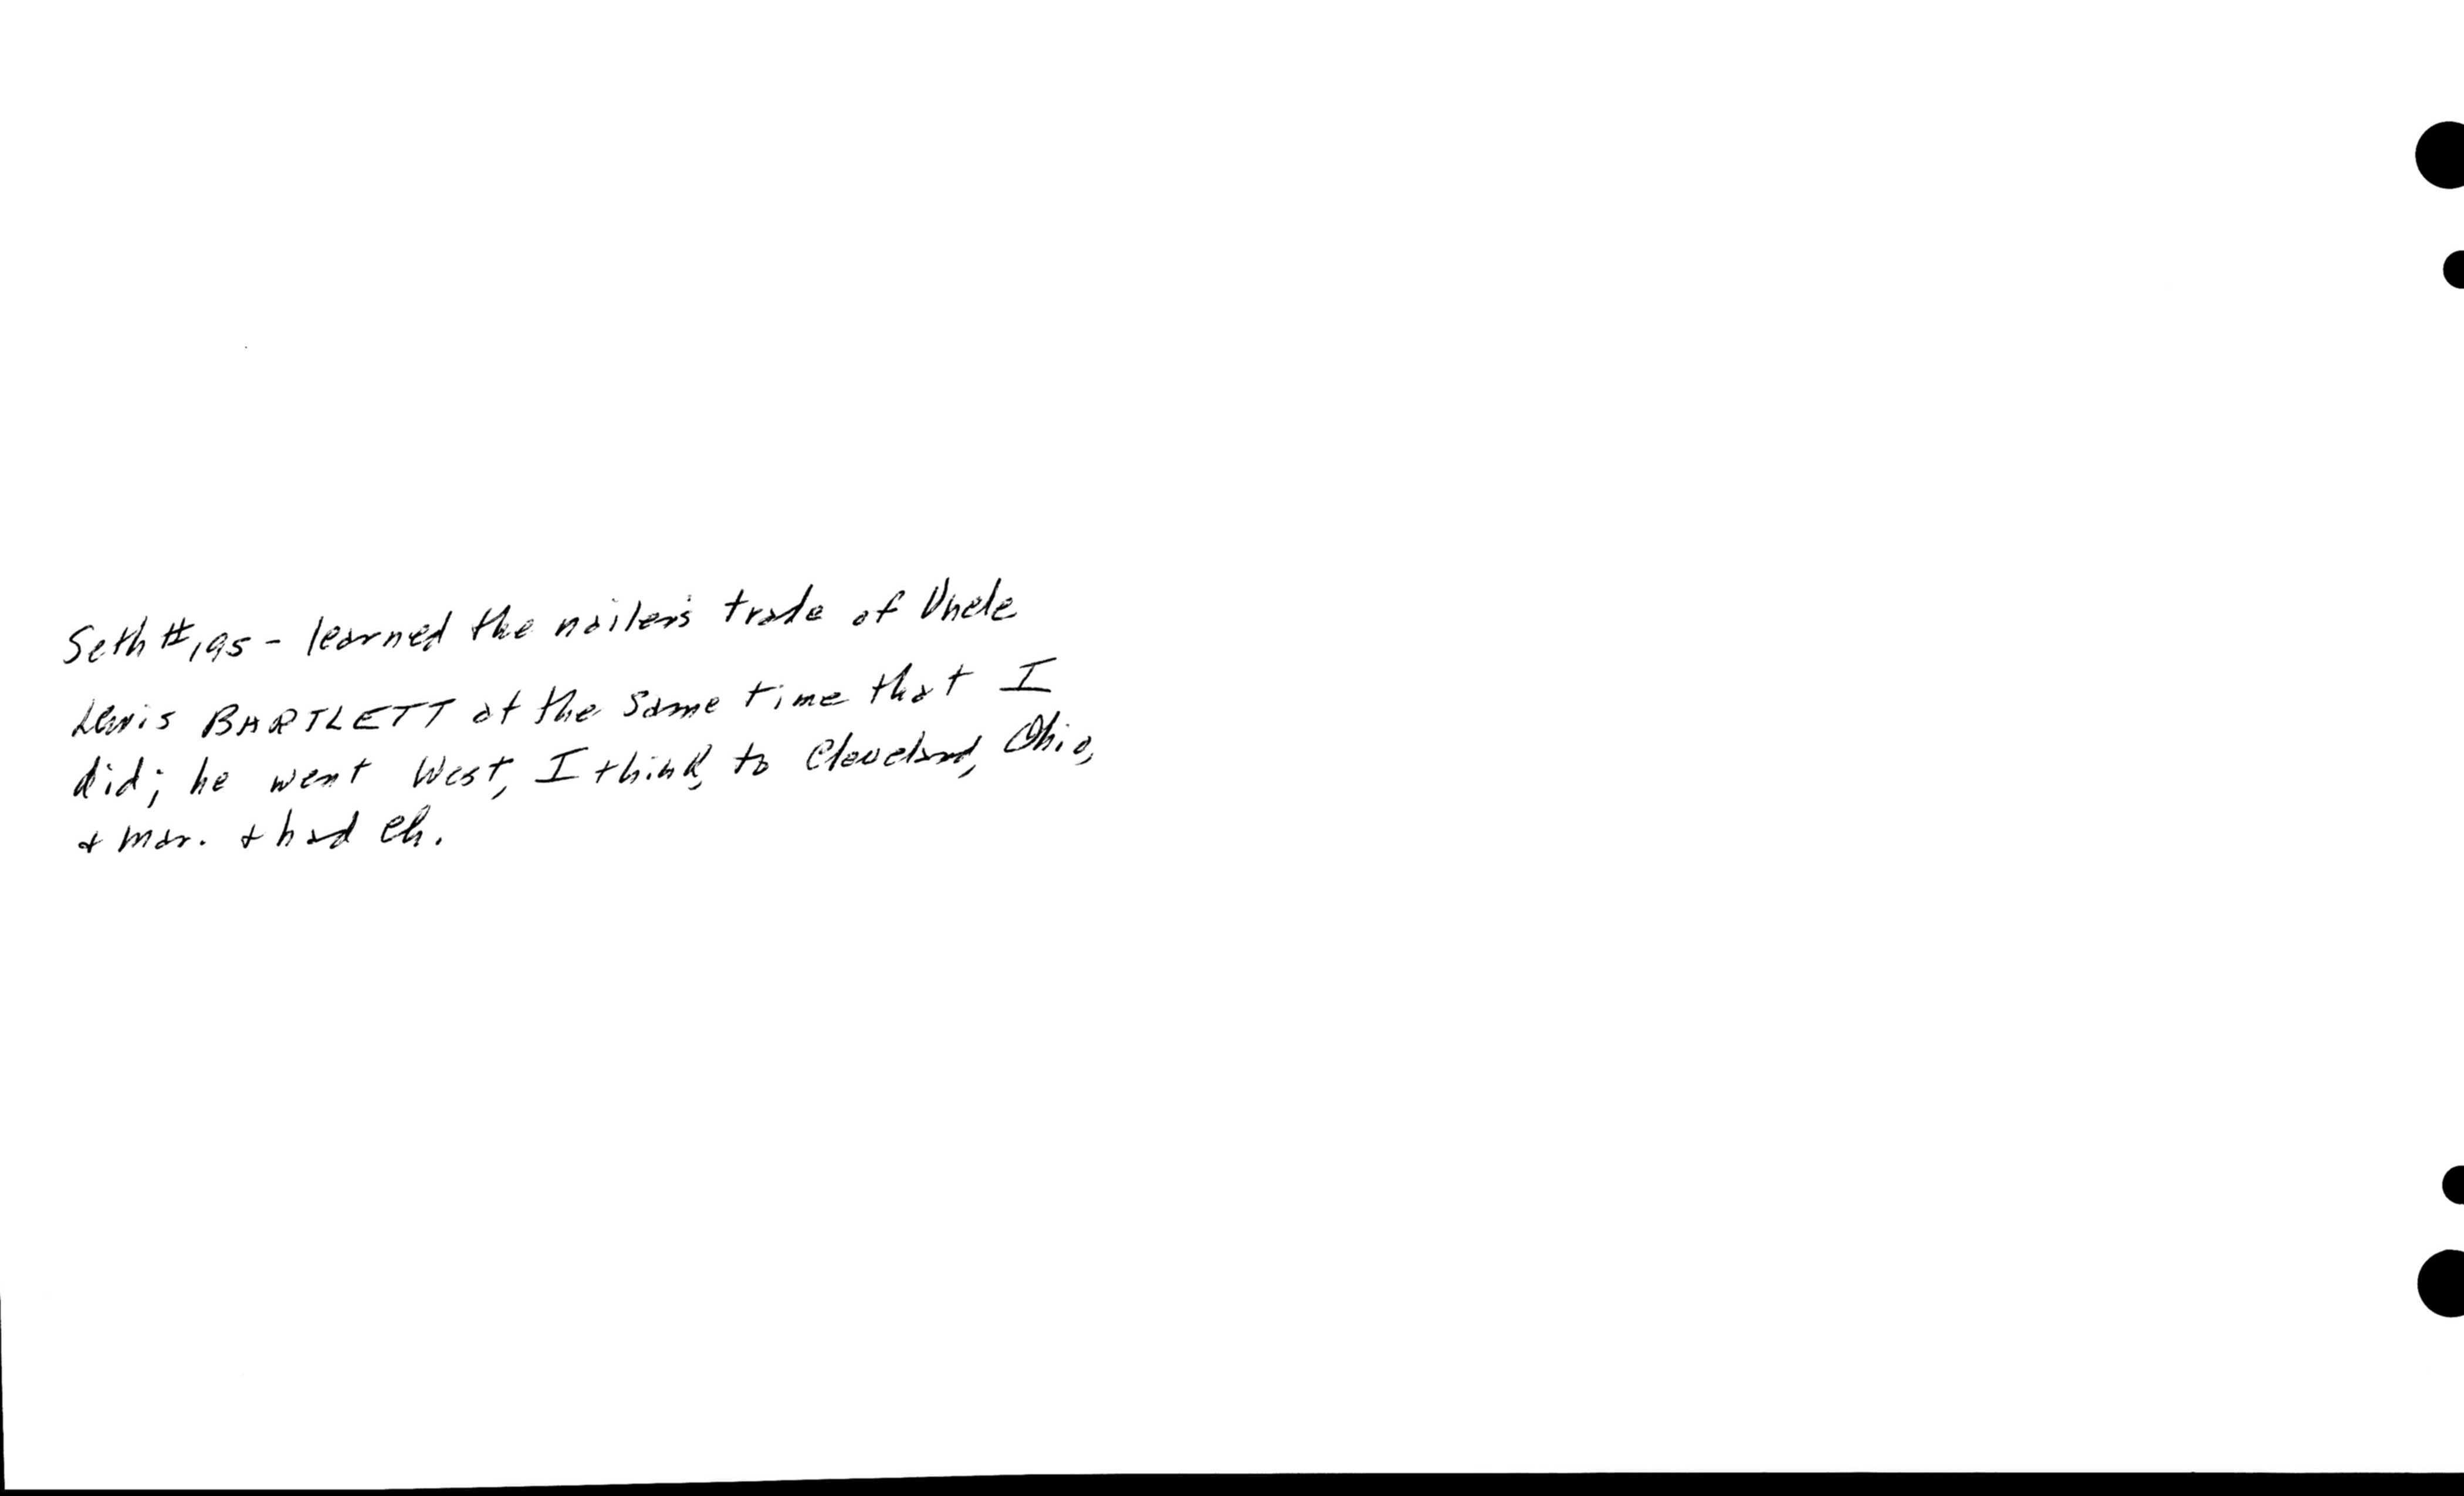 Seth #195 - learned the nailer's trade of Uncle
Lewis BARTLETT at the same time that I
did; he went West, I think, to Cleveland, Ohio,
& mar. & had ch.